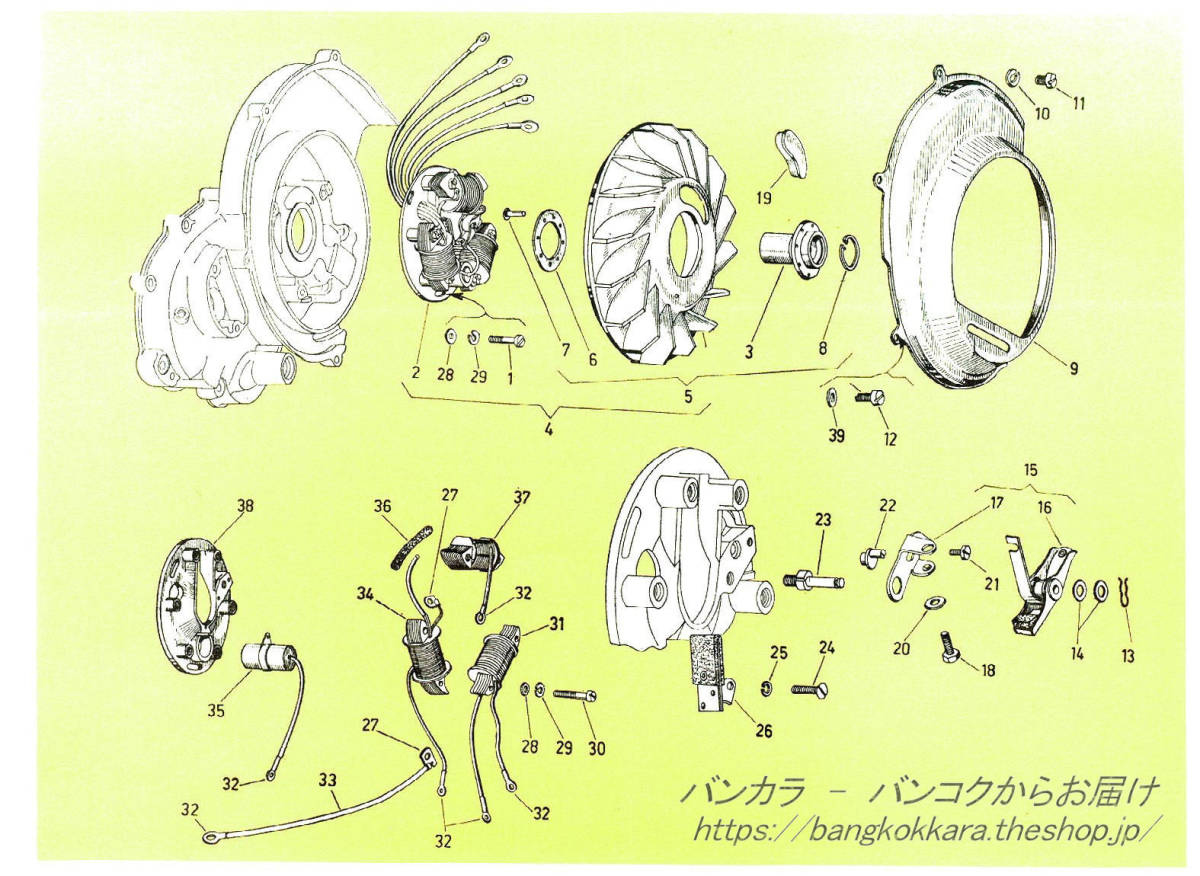 10 11
19
2 28 29 1 7 6 3 8 9
5
4 39 12
15
38 36 27 37 23 22 17 16
34 32 31 21
35 27 20 18 14 13
25 24
28 29 30 26
32 33 32
32 32
バンカラ - バンコクからお届け
https://bangkokkara.theshop.jp/